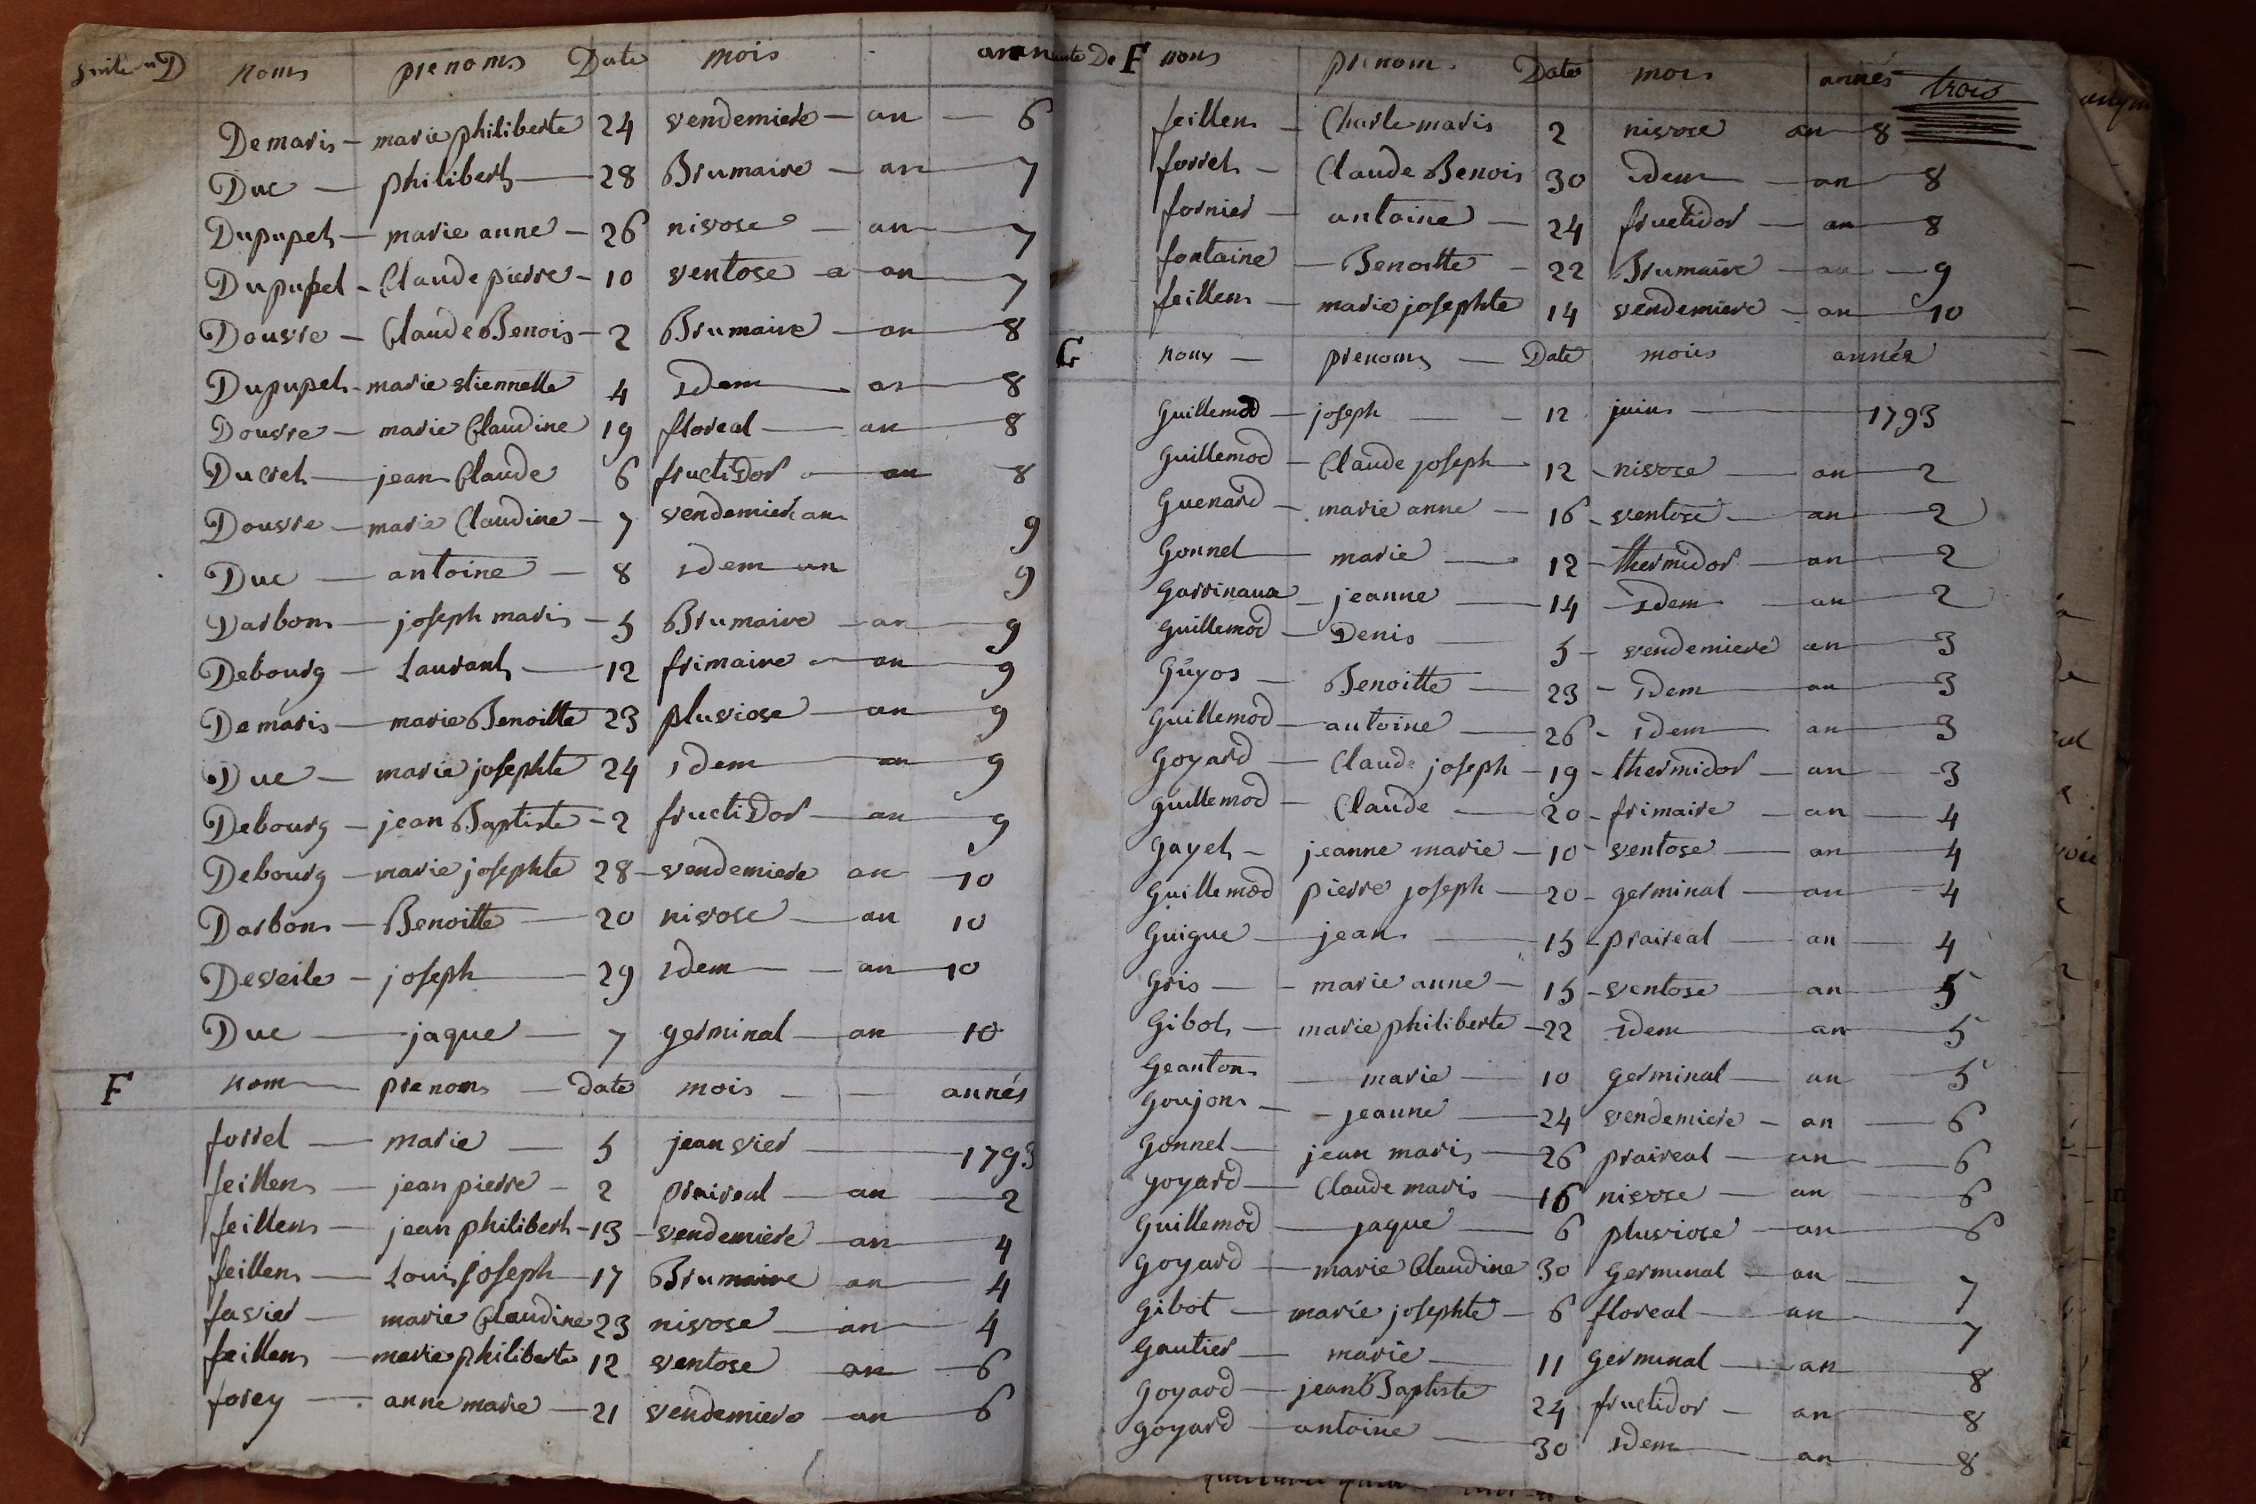 suite D noms prenoms Date mois année
Demaris — marie philiberte 24 vendemiere — an — 6
Duc — philibert — 28 Brumaire — an — 7
Dupupet — marie anne — 26 nivose — an — 7
Dupupet — Claude pierre — 10 ventose — an — 7
Douvre — Claude Benois — 2 Brumaire — an — 8
Dupupet — marie etiennette 4 idem — an — 8
Douvre — marie Claudine 19 floreal — an — 8
Ducret — jean Claude 6 fructidor — an 8
Douvre — marie Claudine — 7 vendemiere an 9
Duc — antoine — 8 idem an 9
Darbon — joseph marie — 5 Brumaire — an — 9
Debourg — Laurant — 12 frimaire — an — 9
Demaris — marie Benoitte 23 pluviose — an — 9
Duc — marie josephte 24 idem — an — 9
Debourg — jean Baptiste — 2 fructidor — an — 9
Debourg — marie josephte 28 — vendemiere an — 10
Darbon — Benoitte — 20 nivose — an 10
Deveile — joseph — 29 idem — an — 10
Duc — jaque — 7 germinal — an — 10
F nom — prenom — date mois — années
forret — marie — 5 jeanvier — 1793
feillens — jean pierre — 2 praireal — an — 2
feillens — jean philibert — 13 — vendemiere — an — 4
feillens — Louis joseph — 17 Brumaire an — 4
favier — marie Claudine 23 nivose — an — 4
feillens — marie philiberte 12 ventose an — 6
forey — anne marie — 21 vendemiere — an — 6
suite De F noms prenom Date mois années trois
feillens — Charle marie 2 nivose an — 8
forret — Claude Benois 30 idem — an — 8
fornier — antoine — 24 fructidor — an — 8
fontaine — Benoitte — 22 Brumaire — an — 9
feillens — marie josephte 14 vendemiere — an — 10
G noms — prenoms — Date mois années
Guillemod — joseph — 12 juin — 1793
Guillemod — Claude joseph — 12 — nivose — an — 2
Guenard — marie anne — 16 — ventose — an — 2
Gonnet — marie — 12 — thermidor — an — 2
jeanne — 14 — idem — an — 2
Guillemod — Denis — 5 — vendemiere an — 3
Guyos — Benoitte — 23 — idem — an — 3
Guillemod — antoine — 26 — idem — an — 3
Goyard — Claude joseph — 19 — thermidor — an — 3
Guillemod — Claude — 20 — frimaire — an — 4
Gayet — jeanne marie — 10 — ventose — an — 4
Guillemod pierre joseph — 20 — germinal — an — 4
Guigue — jean — 15 — praireal — an — 4
Gris — marie anne — 15 — ventose — an — 5
Gibot — marie philiberte — 22 idem — an — 5
Geanton — marie — 10 germinal — an — 5
Goujon — jeanne — 24 vendemiere — an — 6
Gonnet — jean marie — 26 praireal — an — 6
Goyard — Claude marie — 16 nivose — an — 6
Guillemod — jaque — 6 pluviose — an — 6
Goyard — marie Claudine 30 Germinal — an — 7
Gibot — marie josephte — 6 floreal — an — 7
Gautier — marie — 11 Germinal — an — 8
Goyard — jean Baptiste 24 fructidor — an — 8
Goyard — antoine — 30 idem — an — 8